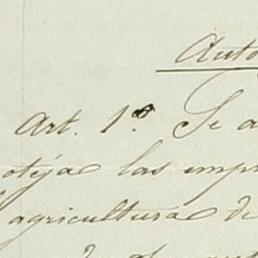 Auto
Art. 1º. Se a
oteja las empr
agricultura de